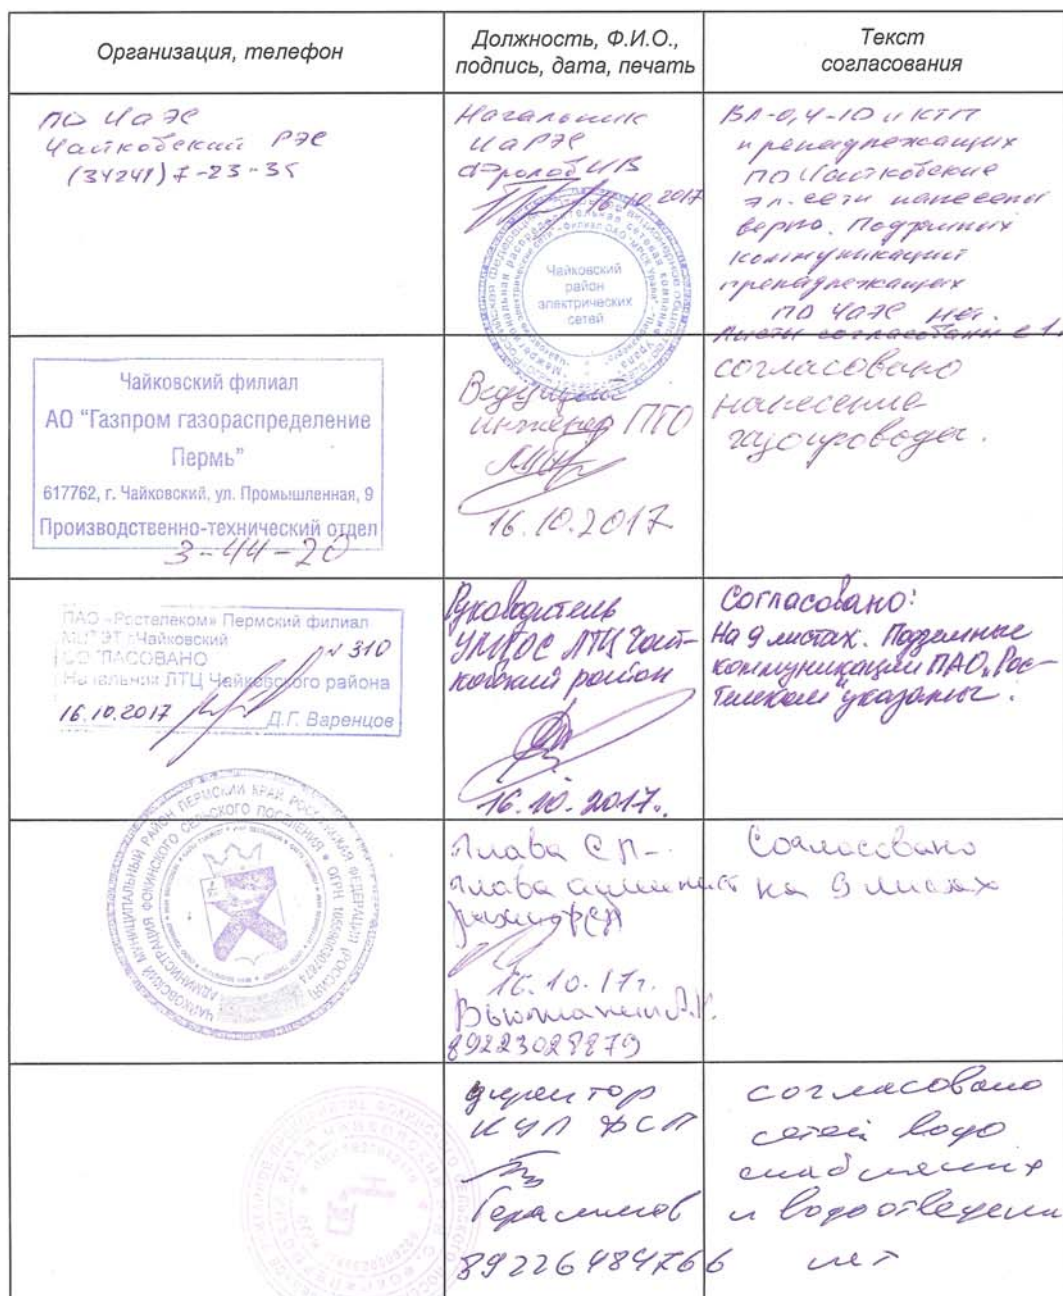 Организация, телефон
Должность, Ф.И.О.,
подпись, дата, печать
Текст
согласования
ПО ЧаЭС
Чайковский РЭС
(34241) 7-23-35
Начальник
ЧаРЭС
Фролов ИВ
16.10.2017
Чайковский
район
электрических
сетей
ВЛ-0,4-10 и КТП
принадлежащих
ПО Чайковские
эл. сети нанесены
верно. Подземных
коммуникаций
принадлежащих
ПО ЧаЭС нет.
Листы согласованы с 1
Чайковский филиал
АО "Газпром газораспределение
Пермь"
617762, г. Чайковский, ул. Промышленная, 9
Производственно-технический отдел
3-44-20
Ведущий
инженер ПТО
16.10.2017
согласовано
нанесение
газопровода.
ПАО «Ростелеком» Пермский филиал
Чайковский
СОГЛАСОВАНО
№ 310
Начальник ЛТЦ Чайковского района
16.10.2017
Д.Г. Варенцов
Руководитель
ЛТЦ Чай-
ковский район
16.10.2017.
Согласовано:
На 9 листах. Подземные
коммуникации ПАО „Рос-
телеком" указаны.
ЧАЙКОВСКИЙ МУНИЦИПАЛЬНЫЙ РАЙОН ПЕРМСКИЙ КРАЙ РОССИЙСКАЯ ФЕДЕРАЦИЯ (РОССИЯ)
АДМИНИСТРАЦИЯ ФОКИНСКОГО СЕЛЬСКОГО ПОСЕЛЕНИЯ
Глава СП-
глава админист
16.10.17г.
89223029879
Согласовано
на 9 листах
директор
КУП ФСП
Герасимов
89226484766
согласовано
сетей водо
снабжения
и водоотведени
нет